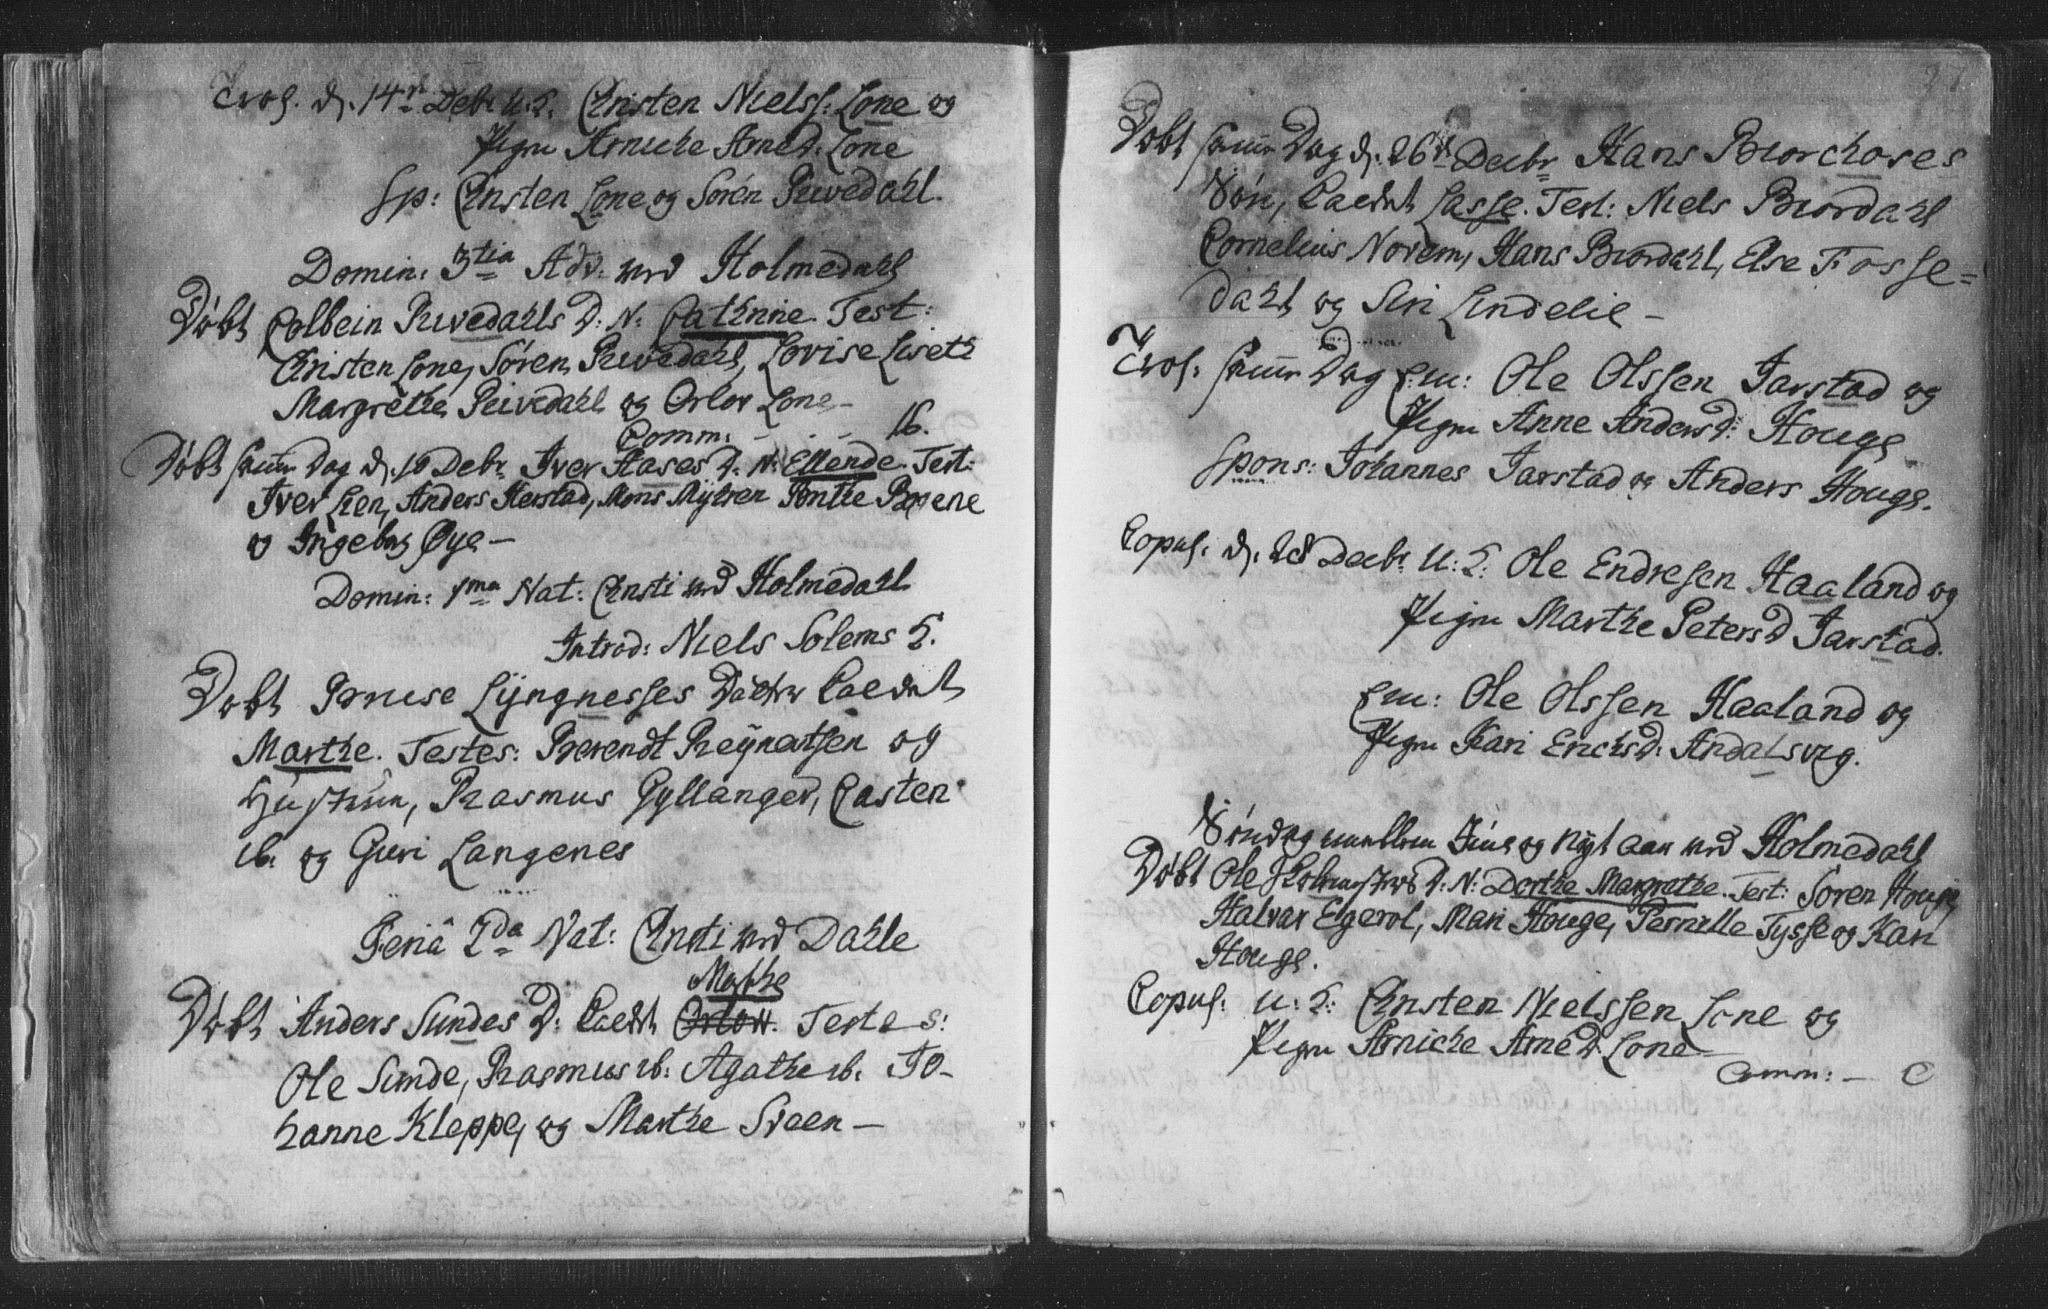 Trol. d. 14de Debr. U: K. Christen Nielss: Lone og
Pigen Arnicke Arne D. Lone
Sp: Christen Lone og Sören Rivedahl.
Domin: 3tia Adv: ved Holmedahl
Döbt Colbein Rivedahls D: N: Cathrine. Test:
Christen Lone, Sören Rivedahl, Lovise Liseth
Margrethe Rivedahl og Orlov Lone,—
Comm: - . - 16.
Döbt samme Dag d. Debr. Iver Aases D: N: Ellende. Test:
Iver Lien, Anders Herstad, Mons Myhren Bente
og Ingebor Øye —
Domin: 1ma Nat: Christi ved Holmedahl
Introd: Niels Solems K.
Döbt Lyngnesses Datter kaldet
Marthe. Testes: Berendt Reynertsen og
Hustrue, Rasmus Gyllanger, Casten
ib: og Guri Langenes
Feriâ 2da Nat: Christi ved Dahle
Marthe
Döbt Anders Sundes D: kaldet Testes:
Ole Sunde, Rasmus ib: Agathe ib: Jo-
hanne Kleppe, og Marthe Sveen —
27
Döbt samme Dag d. 26de Decbr Hans Biorchoses
Sön, kaldet Lasse. Test: Niels Biordahl
Cornelius Norem, Hans Biordahl, Else Fosse=
dahl og Siri Lindelie —
Trol: samme Dag E: m: Ole Olssen Jarstad og
Pigen Anne Anders D: Houge
Spons: Johannes Jarstad og Anders Houge.
Copul: d. 28 Decbr U: K: Ole Endresen Haaland og
Pigen Marthe Peters D Jarstad.
E: m: Ole Olssen Haaland og
Pigen Kari Erichs D: Andalsvig.
Söndag mellem Juul og Nyt aar ved Holmedahl
Döbt Ole Skolemesters D: N: Dorthe Margrethe. Test: Sören Houge
Halvar Egerol, Mari Houge, Pernille Tysse og Kari
Houge.
Copul: U: K: Christen Nielssen Lone og
Pigen Arnicke Arne D. Lone
Comm: —